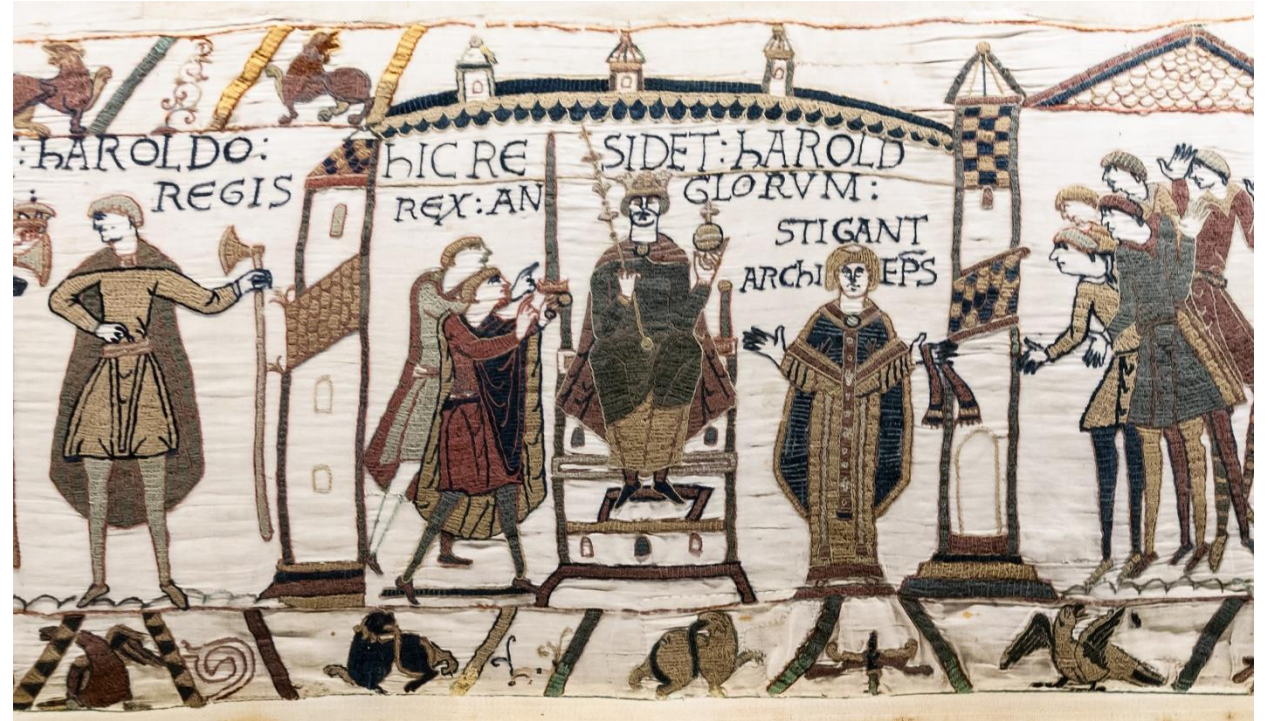 : hAROLDO:
REGIS
hIC RE SIDET: hAROLD
REX: AN GLORVM:
STIGANT
ARChI EP̄S